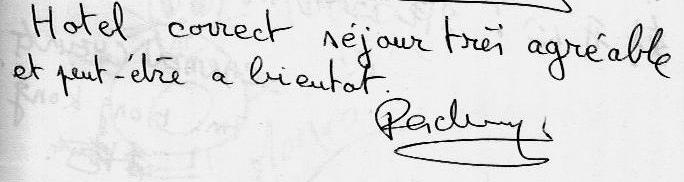 Hotel correct séjour très agréable
et peut-être a bientat.